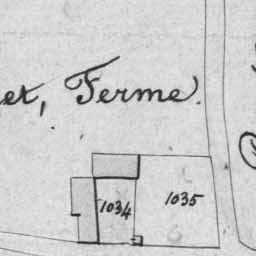 et, Ferme.
1034 1035